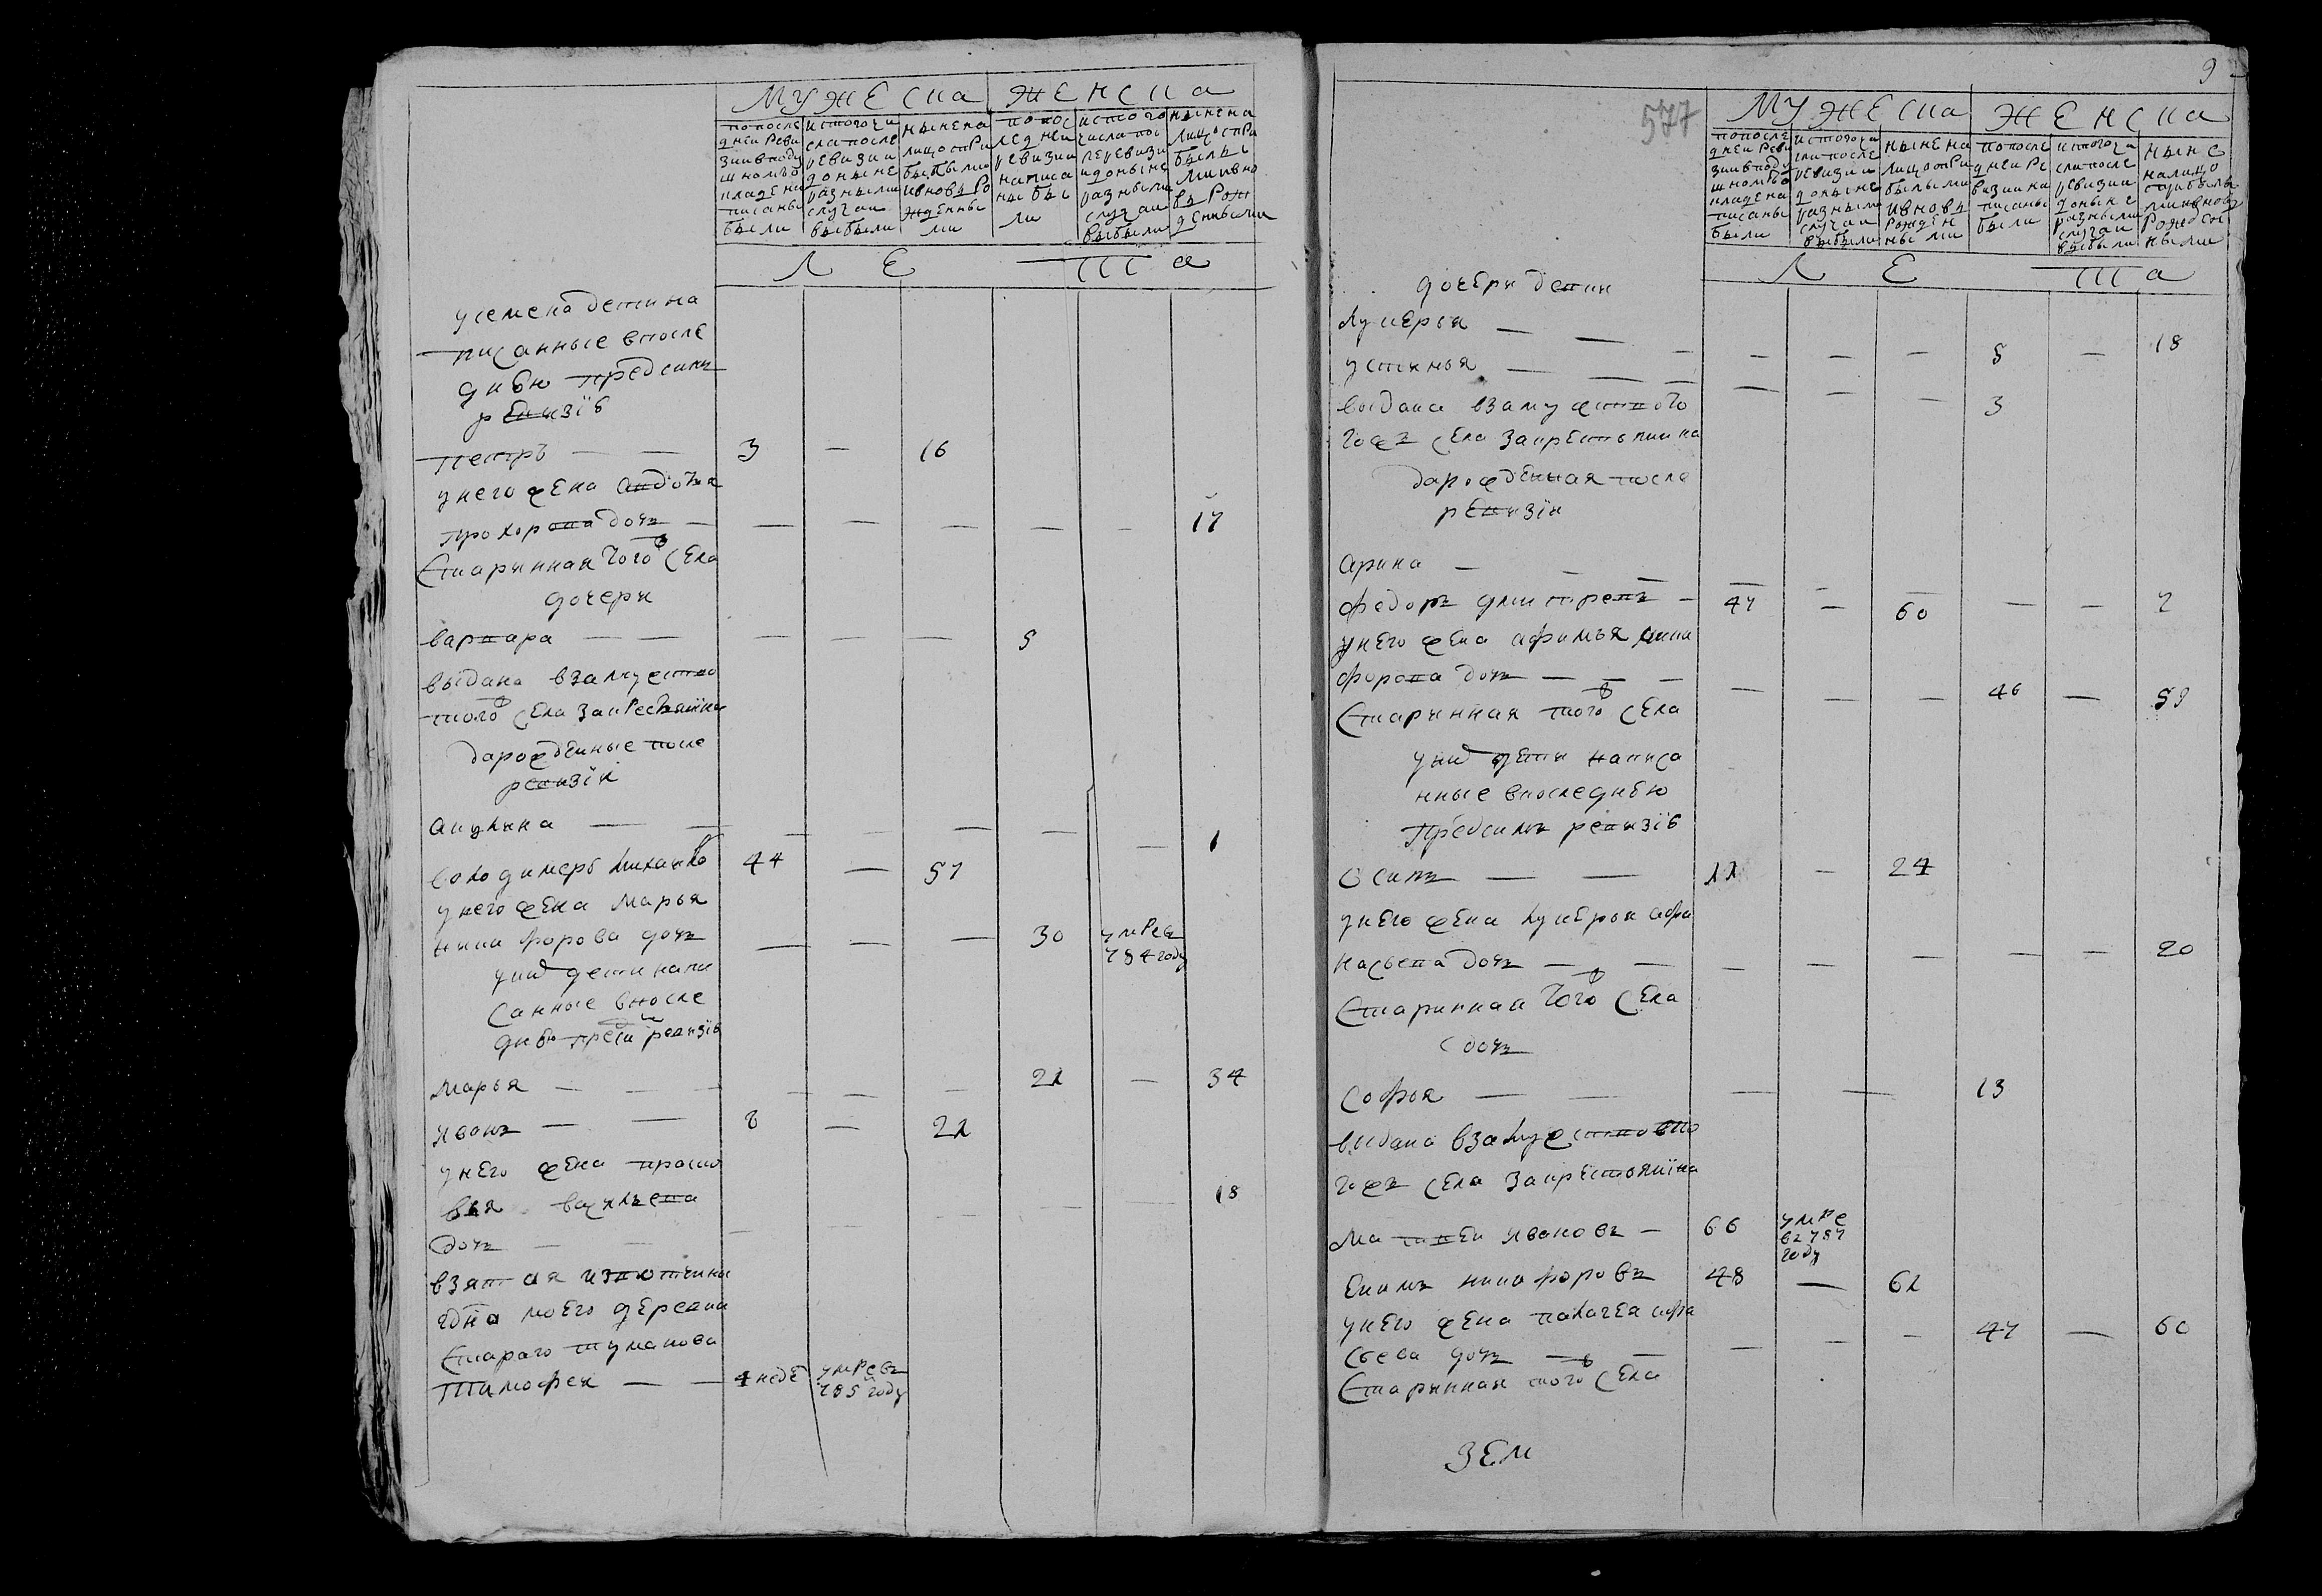 МУЖЕСКА ЖЕНСКА
попосле
дней реви
зии вподу
шномъо
кладена
писаны
были
истогочи
сла после
ревизии
доныне
разными
случаи
выбыли
ныне на
лицо спри
былыми
ивновь ро
жденны
ми
по пос
ледней
ревизии
написа
ны бы
ли
истого
числа пос
леревизи
идоныне
разными
случаи
выбыли
ныне на
лицо спри
былы
ми ивно
вь рож
денными
ЛЕТА
усемена дети на
писанные впосле
днюю предсимъ
ревизію
петръ 3 — 16
унего жена авдотья
прохорова дочь — — — — — 17
старинная того ж села
дочери
варвара — — — 5
выдана взамужство
того ж села за крестьянина
дарожденные после
ревизіи
акулина — — — — — 1
володимеръ михайло 44 — 57
унего жена марья
никифорова дочь — — — 30 умре въ
784 году
уних дети напи
санные впосле
днюю пред сим ревизію
марья — — — 21 — 34
иванъ 8 — 21
унего жена праско
вья василева 18
дочь —
взятая из вотчины
гдна моего деревни
стараго туманова
тимофей 4 неде умре въ
785 году
9
577
МУЖЕСКА ЖЕНСКА
попосле
дней реви
зии вподу
шномъо
кладена
писаны
были
истогочи
сла после
ревизии
доныне
разными
случаи
выбыли
ныне на
лицо спри
былыми
ивновь
рожден
ными
попосле
дней ре
визии на
писаны
были
истогочи
сла после
ревизии
доныне
разными
случаи
выбыли
ныне
налицо
сприбылы
ми ивновь
рожден
ными
ЛЕТА
дочери дети
лукерья — — — 5 — 18
устинья — — — 3
выдана взамужство то
гож села за крестьянина
дарожденная после
ревизіи
арина — — — — — 2
федоръ дмитревъ 47 — 60
унего жена афимья ники
форова дочь — — — 46 — 59
старинная того ж села
уних дети написа
нные впоследнюю
предсимъ ревизію
осипъ 11 — 24
унего жена лукерья афа
насьева дочь — — — — — 20
старинная того ж села
дочь
софья — — 13
выдана взамужство то
гожъ села за крестьянина
матвей ивановъ 66 умре
въ 787
году
екимъ никифоровъ 48 — 61
унего жена палагея афа
сьева дочь — — — 47 — 60
старинная того ж села
ЗЕМ